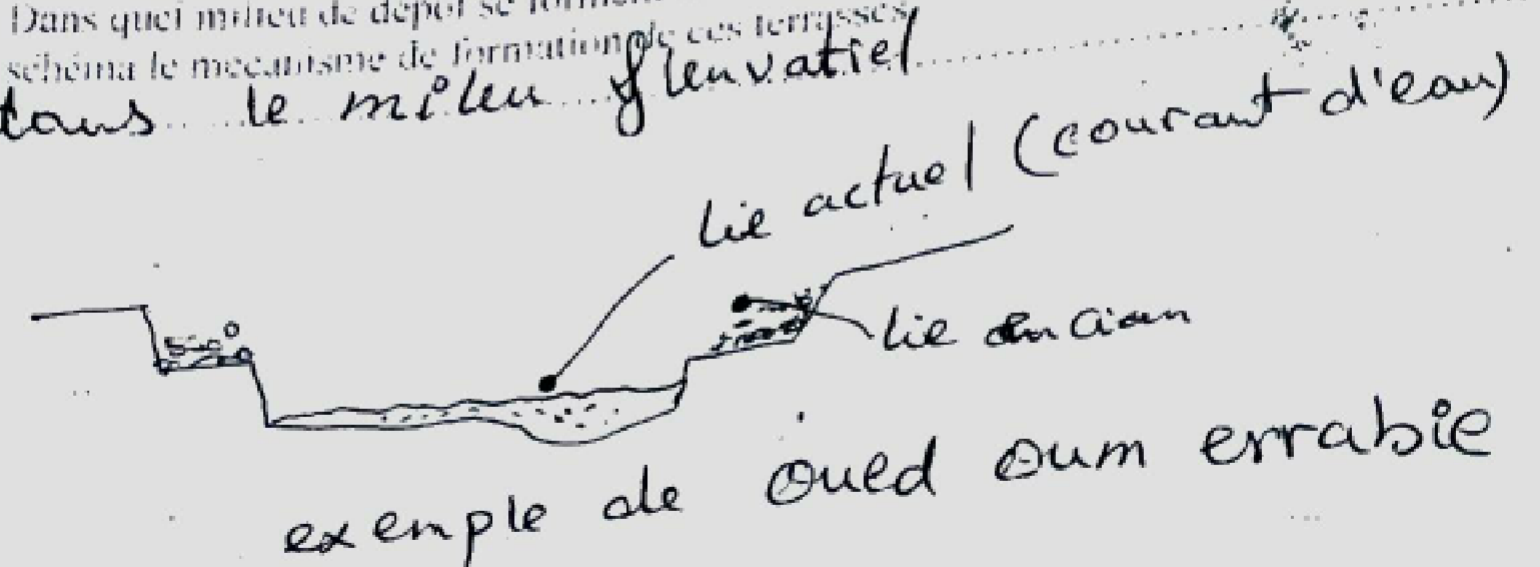 Dans quel milieu de dépôt se
schéma le mécanisme de formation de ces terrasses
le mileu fleuvatiel
lie actuel (courant d'eau)
lie ancian
exemple de oued oum errabie